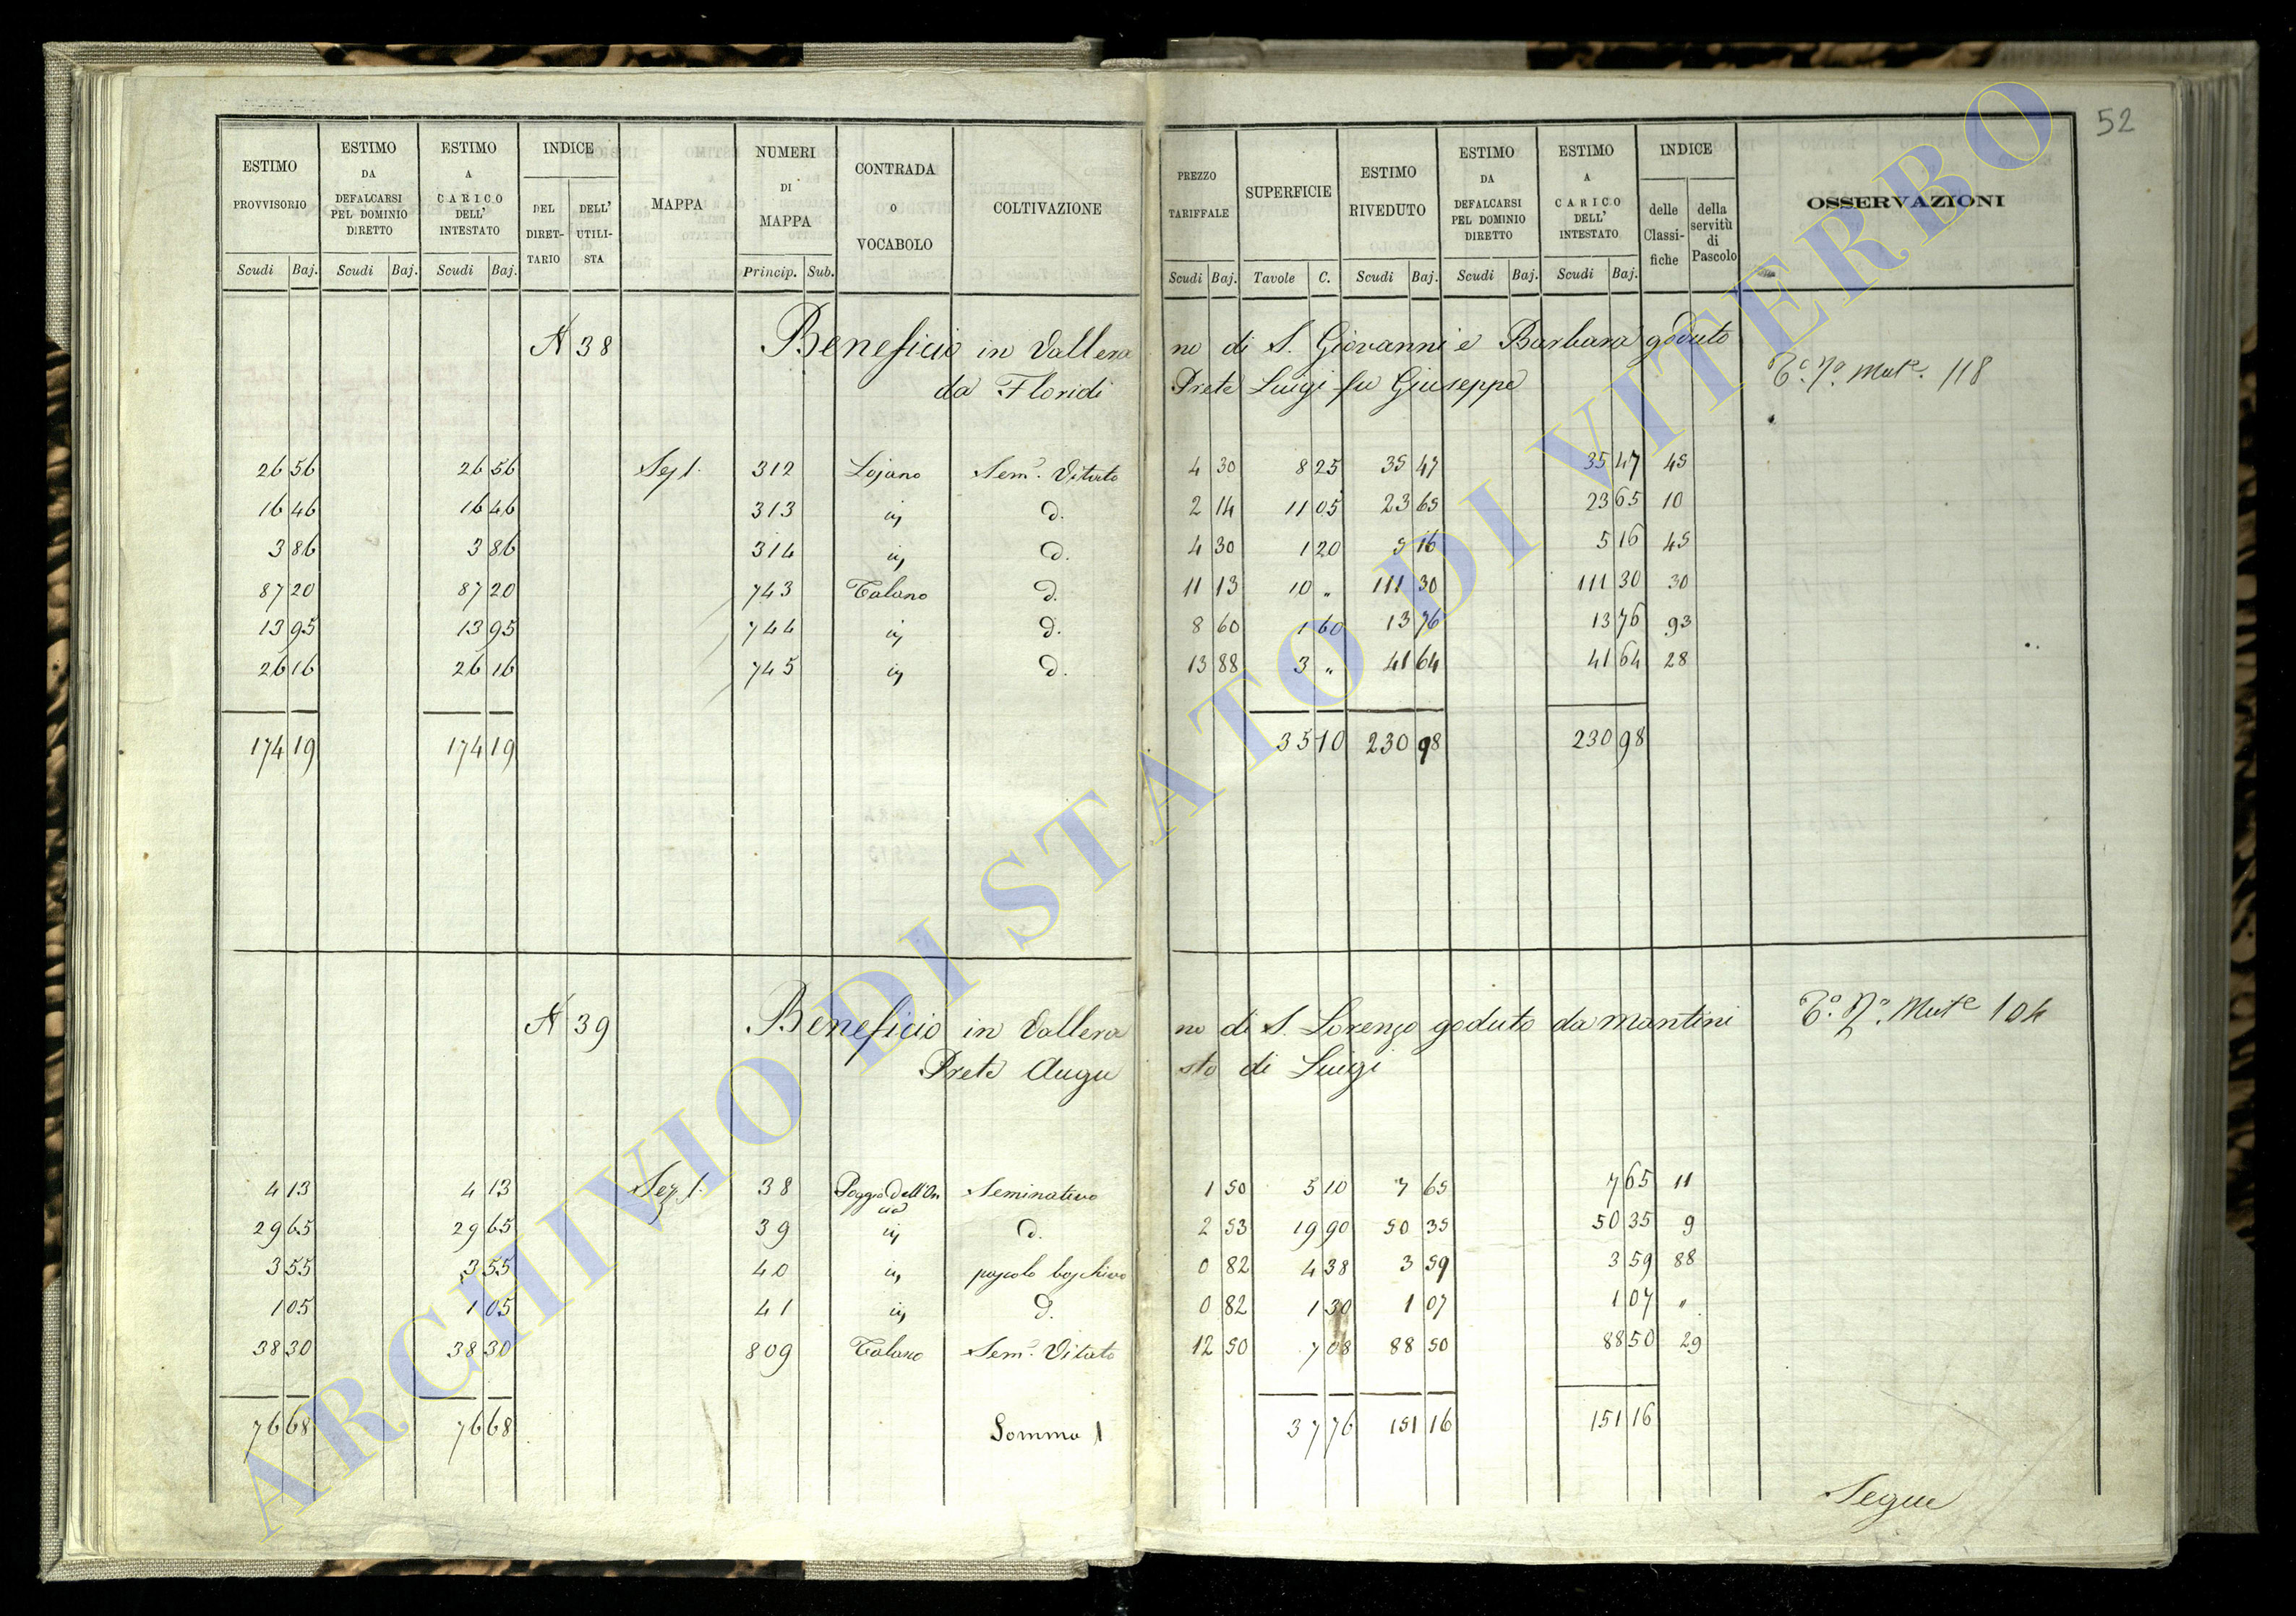 52
ESTIMO PROVVISORIO | ESTIMO DA DEFALCARSI PEL DOMINIO DIRETTO | ESTIMO A CARICO DELL' INTESTATO | INDICE DEL DIRET-TARIO | DELL' UTILI-STA | MAPPA | NUMERI DI MAPPA | CONTRADA O VOCABOLO | COLTIVAZIONE | PREZZO TARIFFALE | SUPERFICIE | ESTIMO RIVEDUTO | ESTIMO DA DEFALCARSI PEL DOMINIO DIRETTO | ESTIMO A CARICO DELL' INTESTATO | INDICE delle Classi-fiche | della servitù di Pascolo | OSSERVAZIONI
Scudi Baj. | Scudi Baj. | Scudi Baj. | Princip. Sub. | Scudi Baj. | Tavole C. | Scudi Baj. | Scudi Baj. | Scudi Baj.
N 38 Beneficio in Vallera no di S. Giovanni e Barbara goduto
da Floridi Prete Luigi fu Giuseppe
Mut. 118
26 56 | 26 56 | Sez 1. | 312 | Lojano | Sem. Vitato | 4 30 | 8 25 | 35 47 | 35 47 | 45
16 46 | 16 46 | 313 | ivi | d. | 2 14 | 11 05 | 23 65 | 23 65 | 10
3 86 | 3 86 | 314 | ivi | d. | 4 30 | 1 20 | 5 16 | 5 16 | 45
87 20 | 87 20 | 743 | Talano | d. | 11 13 | 10 " | 111 30 | 111 30 | 30
13 95 | 13 95 | 744 | ivi | d. | 8 60 | 1 60 | 13 76 | 13 76 | 93
26 16 | 26 16 | 745 | ivi | d. | 13 88 | 3 " | 41 64 | 41 64 | 28
174 19 | 174 19 | 35 10 | 230 98 | 230 98
N 39 Beneficio in Vallera no di S. Lorenzo goduto da Mantini
Prete Augu sto di Luigi
Mut. 104
4 13 | 4 13 | Sez 1. | 38 | Poggio Dell'On cia | Seminativo | 1 50 | 5 10 | 7 65 | 7 65 | 11
29 65 | 29 65 | 39 | ivi | d. | 2 53 | 19 90 | 50 35 | 50 35 | 9
3 55 | 3 55 | 40 | ivi | pascolo boschivo | 0 82 | 4 38 | 3 59 | 3 59 | 88
1 05 | 1 05 | 41 | ivi | d. | 0 82 | 1 30 | 1 07 | 1 07 | "
38 30 | 38 30 | 809 | Talano | Sem. Vitato | 12 50 | 7 08 | 88 50 | 88 50 | 29
76 68 | 76 68 | Somma | 37 76 | 151 16 | 151 16
Segue
ARCHIVIO DI STATO DI VITERBO